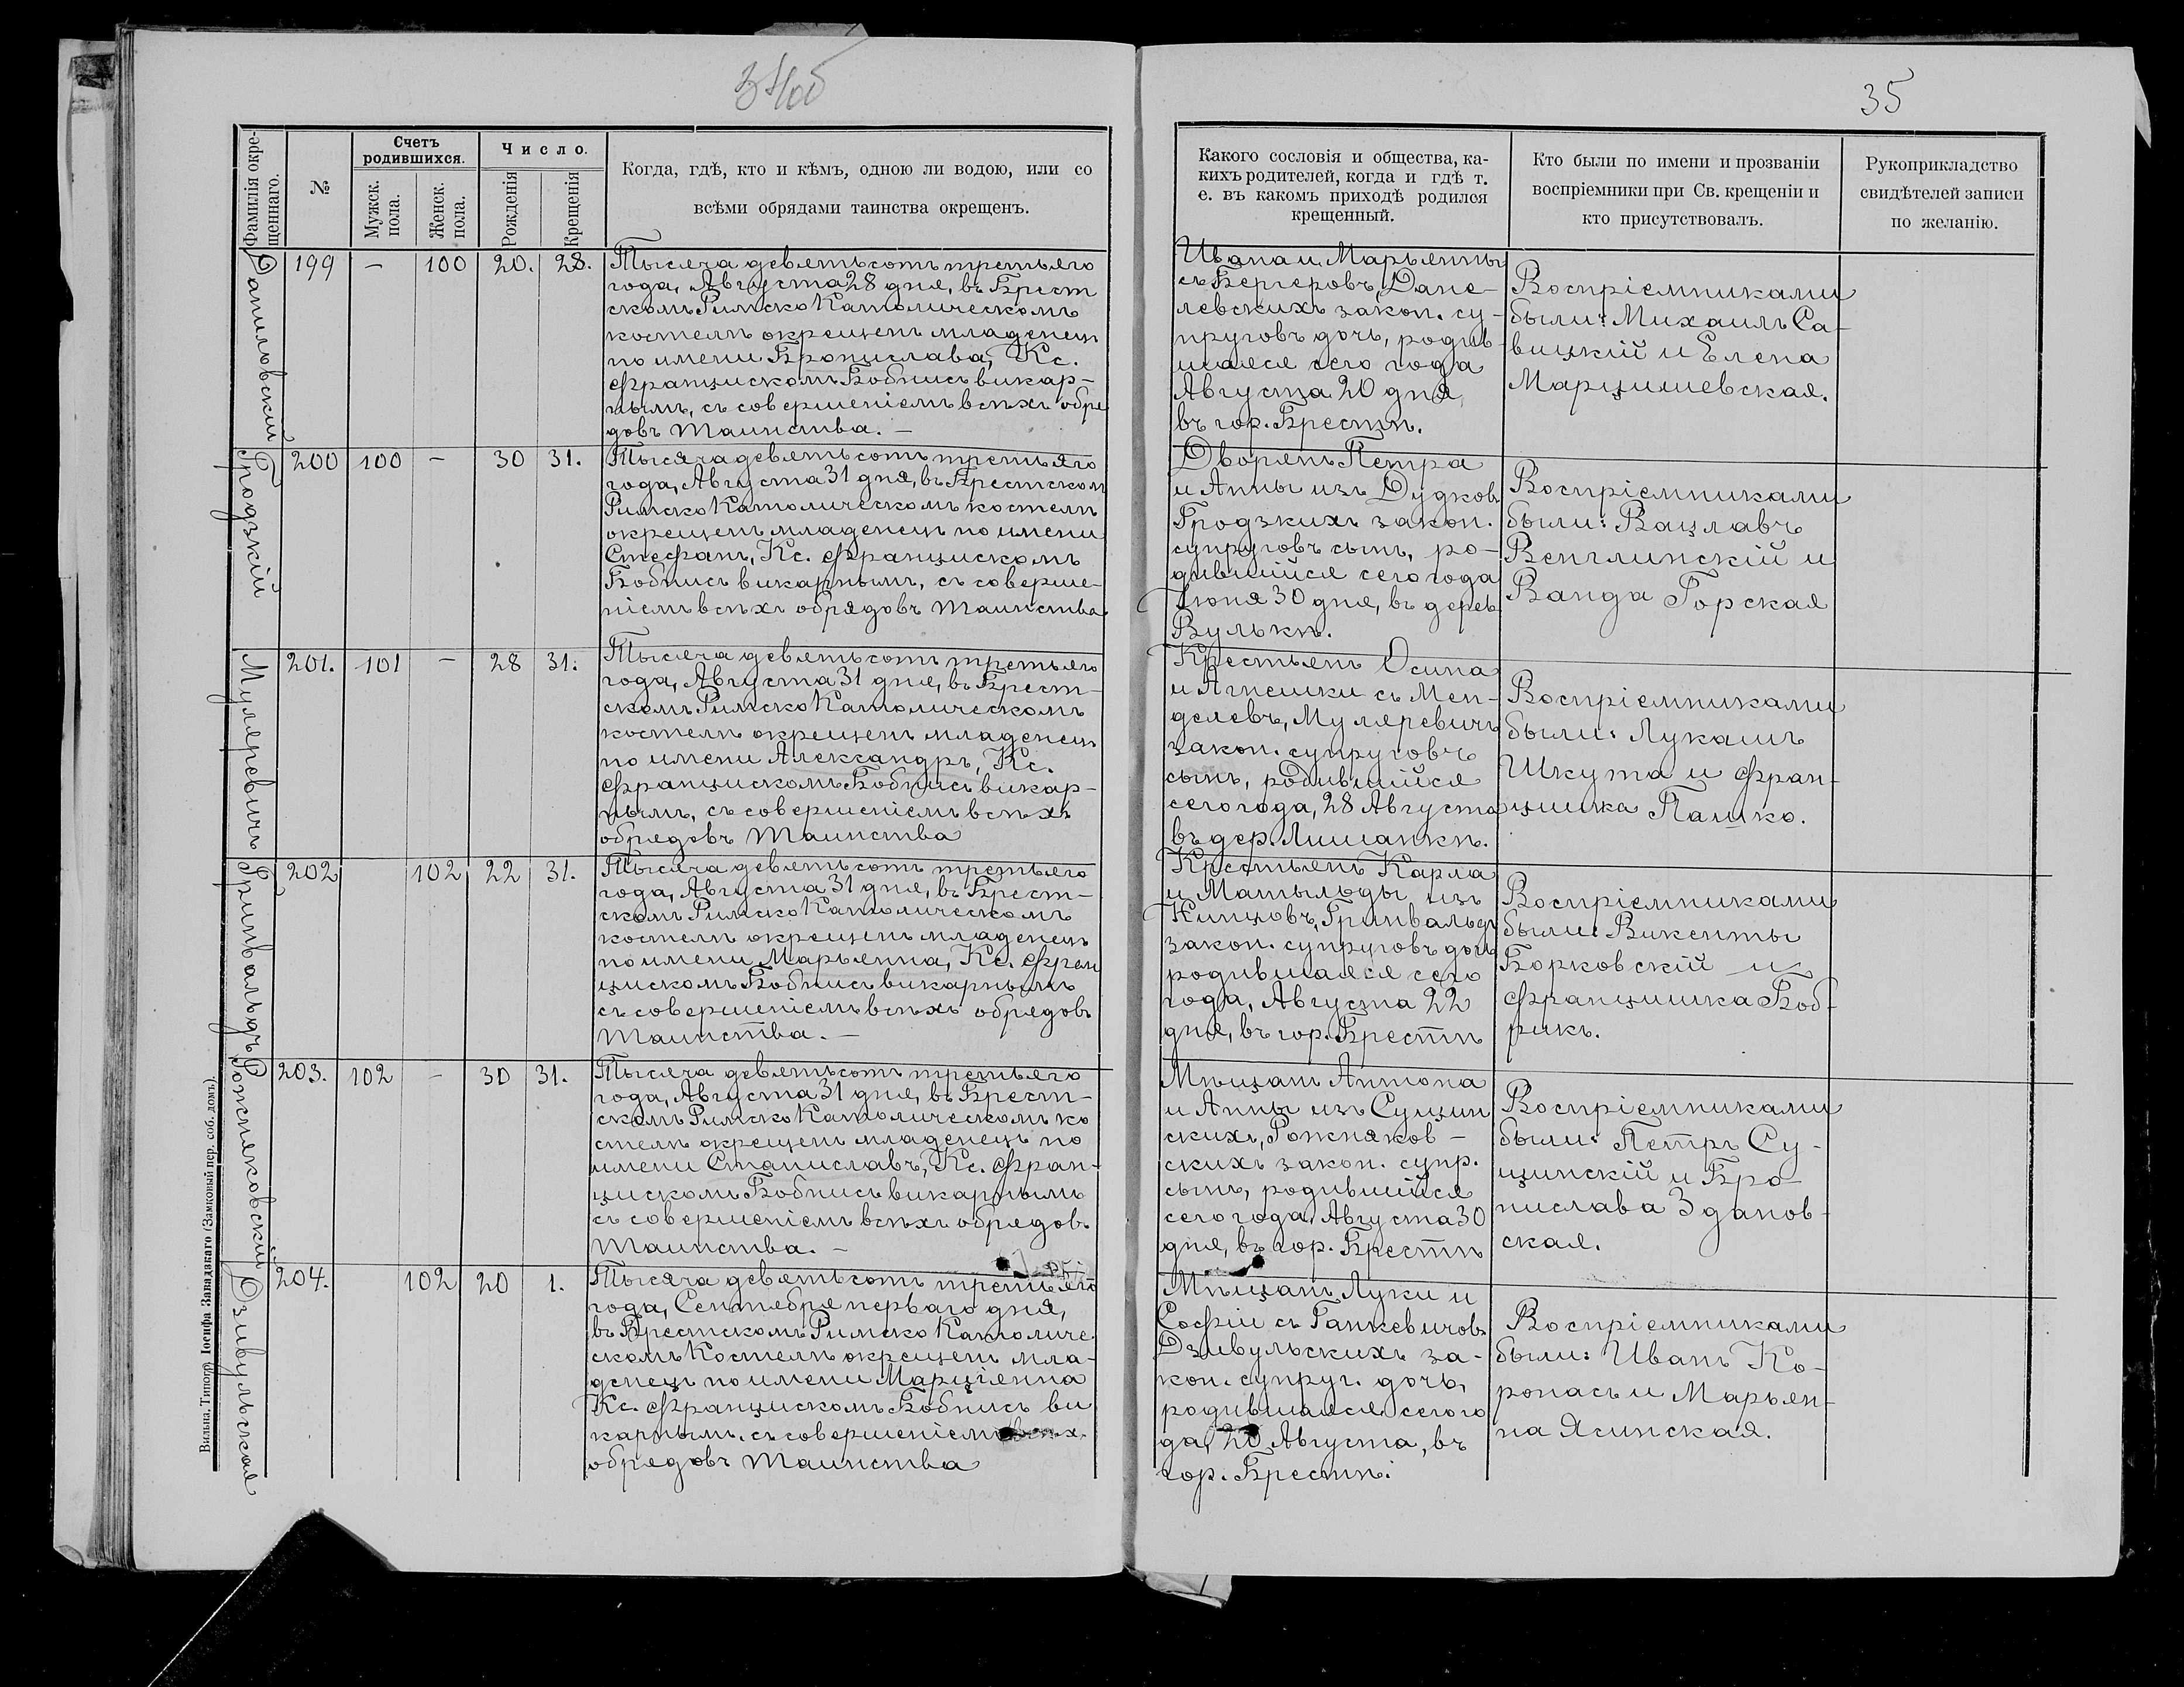 34об
35
Фамилія окре-
щеннаго.
№
Счетъ
родившихся.
Мужск.
пола.
Женск.
пола.
Число.
Рожденія
Крещенія
Когда, гдѣ, кто и кѣмъ, одною ли водою, или со
всѣми обрядами таинства окрещенъ.
Какого сословія и общества, ка-
кихъ родителей, когда и гдѣ т.
е. въ какомъ приходѣ родился
крещенный.
Кто были по имени и прозваніи
воспріемники при Св. крещеніи и
кто присутствовалъ.
Рукоприкладство
свидѣтелей записи
по желанію.
199 — 100 20. 28.
Тысяча девятьсотъ третьяго
года, Августа 28 дня, въ Брест
скомъ Римско Католическомъ
костелѣ окрещенъ младенецъ
по имени Бронислава, Кс.
Францискомъ Бобнисъ викар-
нымъ, съ совершеніемъ всѣхъ обря
довъ Таинства. —
Ивана и Марьянны
съ Бергеровъ, Дане-
левскихъ закон. су-
пруговъ дочь, родив-
шаяся сего года
Августа 20 дня,
въ гор. Брестѣ.
Воспріемниками
были: Михаилъ Са-
вицкій и Елена
Марцишевская.
Гродзкій
200 100 — 30 31.
Тысяча девятьсотъ третьяго
года, Августа 31 дня, въ Брестском
Римско Католическомъ костелѣ
окрещенъ младенецъ по имени
Стефанъ, Кс. Францискомъ
Бобнисъ викарнымъ, съ соверше-
ніемъ всѣхъ обрядовъ Таинства
Дворянъ Петра
и Анны изъ Дудков
Гродзкихъ закон.
супруговъ сынъ, ро-
дившійся сего года
Іюня 30 дня, въ дерев
Вулькѣ.
Воспріемниками
были: Вацлавъ
Венглинскій и
Ванда Горская
Муляревичъ
201. 101 — 28 31.
Тысяча девятьсотъ третьяго
года, Августа 31 дня, въ Брест-
скомъ Римско Католическомъ
костелѣ окрещенъ младенецъ
по имени Александръ, Кс.
Францискомъ Бобнисъ викар-
нымъ, съ совершеніемъ всѣхъ
обрядовъ Таинства
Крестьянъ Осипа
и Агнешки съ Мен-
делевъ, Муляревичъ
закон. супруговъ
сынъ, родившійся
сего года, 28 Августа
въ дер. Лишанкѣ.
Воспріемниками
были: Лукашъ
Шкута и Фран-
цишка Пашко.
Гринвальдъ
202 102 22 31.
Тысяча девятьсотъ третьяго
года, Августа 31 дня, въ Брест-
скомъ Римско Католическомъ
костелѣ окрещенъ младенецъ
по имени Марьянна, Кс. Фран
цискомъ Бобнисъ викарнымъ
съ совершеніемъ всѣхъ обрядовъ
Таинства. —
Крестьянъ Карла
и Матыльды изъ
Кинцовъ, Гринвальдъ
закон. супруговъ дочь
родившаяся сего
года, Августа 22
дня, въ гор. Брестѣ
Воспріемниками
были: Викенты
Борковскій и
Францишка Боб-
рикъ.
Рожняковскій
203. 102 — 30 31.
Тысяча девятьсотъ третьяго
года, Августа 31 дня, въ Брест-
скомъ Римско Католическомъ ко
стелѣ окрещенъ младенецъ по
имени Станиславъ, Кс. Фран-
цискомъ Бобнисъ викарнымъ
съ совершеніемъ всѣхъ обрядовъ
Таинства. —
Мѣщанъ Антона
и Анны изъ Сущин
скихъ, Рожняков-
скихъ закон. супр.
сынъ, родившійся
сего года, Августа 30
дня, въ гор. Брестѣ
Воспріемниками
были: Петръ Су-
щинскій и Бро-
нислава Зданов-
ская.
Дзивульская
204. 102 20 1.
Тысяча девятьсотъ третьяго
года, Сентября перваго дня,
въ Брестскомъ Римско Католиче
скомъ Костелѣ окрещенъ мла-
денецъ по имени Марціенна
Кс. Францискомъ Бобнисъ ви
карнымъ. съ совершеніемъ всѣхъ
обрядовъ Таинства
Мѣщанъ Луки и
Софіи съ Ганкевичовъ
Дзивульскихъ за-
кон. супруг. дочь,
родившаяся сего го
да, 20 Августа, въ
гор. Брестѣ.
Воспріемниками
были: Иванъ Ко-
ронасъ и Марьян-
на Ясинская.
Вильна, Типогр. Іосифа Завадзкаго (Замковый пер. соб. домъ).